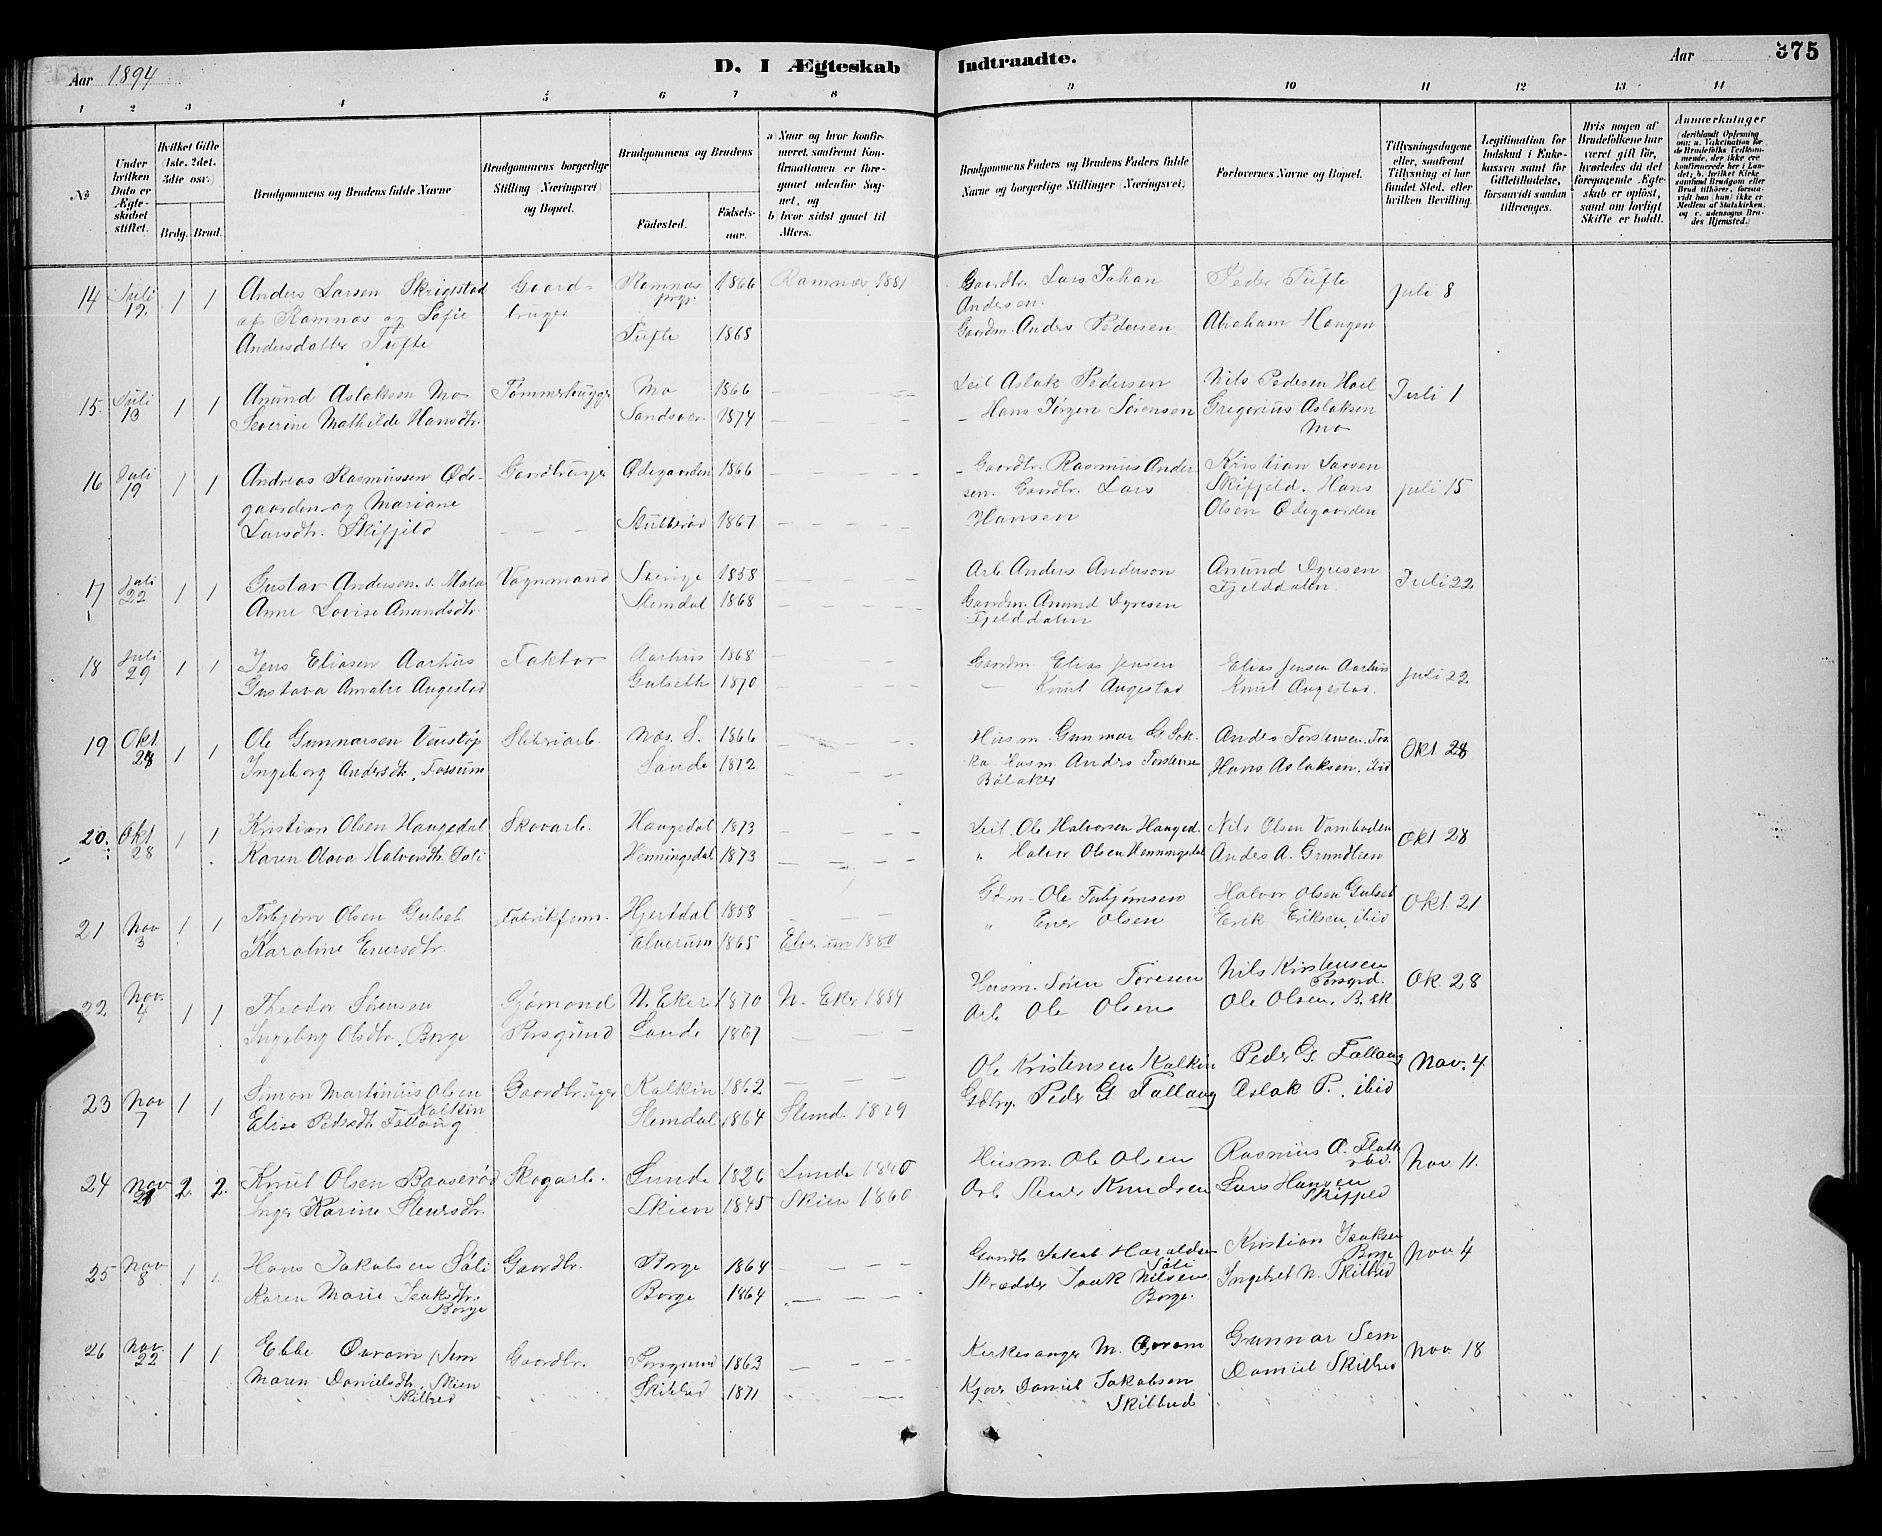 Aar 1894
D. I Ægteskab Indtraadte.
Aar 375
1 2 3 4 5 6 7 8 9 10 11 12 13 14
No
Under hvilken Dato er Ægteskabet stiftet.
Hvilket Gifte (1ste, 2det, 3die osv.)
Brdg. Brud.
Brudgommens og Brudens fulde Navne
Brudgommens borgerlige Stilling (Næringsvei) og Bopæl.
Brudgommens og Brudens
Fødested.
Fødsels-aar.
a Naar og hvor konfirmeret, saafremt Konfirmationen er foregaaet udenfor Sognet, og
b hvor sidst gaaet til Alters.
Brudgommens Faders og Brudens Faders fulde Navne og borgerlige Stillinger (Næringsvei)
Forlovernes Navne og Bopæl.
Tillysningsdagene eller, saafremt Tillysning ei har fundet Sted, efter hvilken Bevilling.
Legitimation for Indskud i Enkekassen samt for Giftetilladelse, forsaavidt saadan tiltrænges.
Hvis nogen af Brudefolkene har været gift før, hvorledes da det foregaaende Ægteskab er opløst, samt om lovligt Skifte er holdt.
Anmærkninger
14 Juli 12 1 1 Anders Larsen Skrigestad Gaard- Ramnæs 1866 Ramnæs 1881 Gaardbr. Lars Johan Peder Tufte Juli 8
af Ramnæs og Sofie bruger prgj. Andersen.
Andersdatter Tufte Tufte 1868 Gaardm. Anders Pedersen Abraham Haugen
15. Juli 13 1 1 Anund Aslaksen Mo Tømmerhugger Mo 1866 Leil. Aslak Pedersen Nils Pedersen Hoel Juli 1
Severine Mathilde Hansdtr. Sandsvær. 1874 Hans Jørgen Sørensen Gregorius Aslaksen
Mo
16 Juli 19 1 1 Andreas Rasmussen Øde- Gaardbruger Ødegaarden 1866 Gaardbr. Rasmus Ander Kristian Larsen
gaarden og Mariane sen. Gaardbr. Lars Skifjeld. Hans Juli 15
Larsdtr. Skifjeld 1867 Hansen Olsen Ødegaarden
17 Juli 22 1 1 Gustav Andersen Vognmand 1858 Arb. Anders Anderson Anund Dyresen Juli 22
Anne Lovise Anundsdtr. Slemdal 1868 Gaardm. Anund Dyresen Fjelddalen.
Fjelddalen
18 Juli 29 1 1 Jens Eliasen Aarhus Faktor Aarhus 1868 Gaardm. Elias Jensen Elias Jensen Aarhus Juli 22
Gustava Amalie Augestad Gulseth 1870 Knut Augestad Knut Augestad.
19 Okt. 28 1 1 Ole Gunnarsen Venstøp Sliberiarb. Næs. S. 1866 Husm. Gunnar G Sok- Anders Torstensen. Fos. Okt 28
Ingeborg Andersdtr. Fossum Sande 1872 ka Husm. Anders Torstensen Hans Aslaksen. ibid
Bølaker
20. Okt 28 1 1 Kristian Olsen Haugedal Skovarb. Haugedal 1873 Leil. Ole Halvorsen Hauged. Nils Olsen Okt 28
Karen Olava Halvorsdtr. Søli Henningsdal 1873 " Halvor Olsen Henningsdal Anders A. Grundtien
21 Nov 3 1 1 Torbjørn Olsen Gulset Hjertdal 1858 Gdm. Ole Torbjørnsen Halvor Olsen Gulset Okt 21
Karoline Eversdtr. Elverum 1865 Elverum 1880 " Ever Olsen Erik Eriksen, ibid
22 Nov. 4 1 1 Theodor Sørensen Sjømand N. Eker 1870 N. Eker 1884 Husm. Søren Toresen Nils Kirstensen Ok. 28
Porsgrd.
Ingeborg Olsdtr. Borge Porsgrund Sande 1867 Arb. Ole Olsen Ole Olsen, B. sk
23 Nov 7 1 1 Simon Martinius Olsen Gaardbruger Kalkin 1862 Ole Kristensen Kalkin Peder G. Fallaug Nov. 4
Kalkin
Elise Pedersdtr. Fallaug Slemdal 1864 Slemd. 1879 Gdbrg. Peder G Fallaug Aslak P., ibid
24 Nov 21 2. 2. Knut Olsen Baaserød Skogarb. Lunde 1826 Lunde 1840 Husm. Ole Olsen Rasmus A. Nov. 11.
Inger Karine Stensdtr. Skien 1845 Skien 1860 Arb. Sten Knudsen Lars Hansen
Skifjeld
25 Nov 8 1 1. Hans Jakobsen Søli Gaardbr. Borge 1864 Gaardbr Jakob Haraldsen Kristian Isaksen Nov 4
Søli Borge
Karen Marie Isaksdtr. Borge 1864 Skrædder Isak Nilsen Ingebret N. Skilbred
Borge Borge.
26 Nov. 22 1 1 Ebbe Øvrom Sem Gaardbr. Porsgrund 1863 Kirkesanger M. Øvrom Gunnar Sem Nov. 18
Maren Danielsdtr. Skien Skilbred 1871 Daniel Jakobsen Daniel Skilbred
Skilbred Skilbred